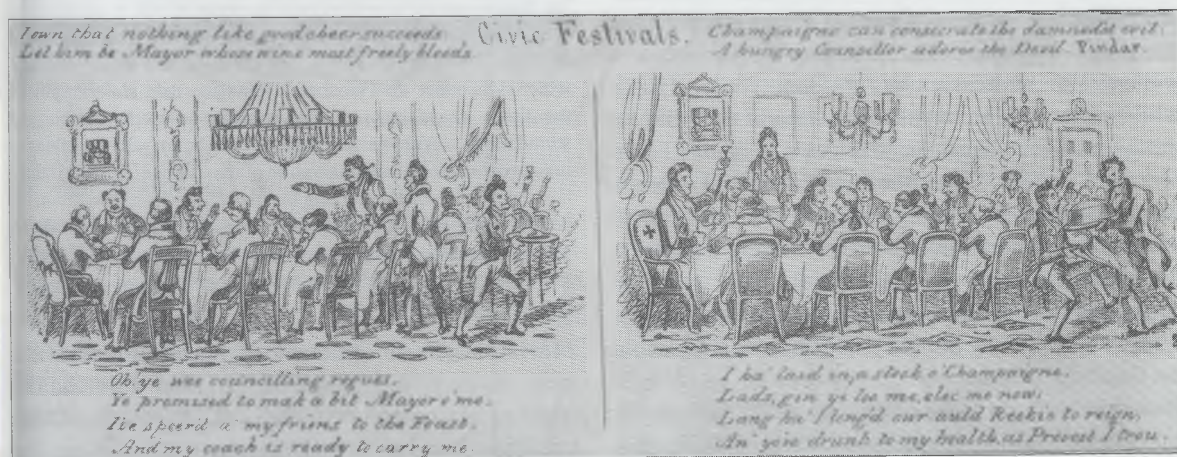 I own that nothing like good cheer succeeds
Let him be Mayor whose wine most freely bleeds.
Civic Festivals.
Champaigne can consecrate the damnedst evil;
A hungry Counsellor adores the Devil. Pindar.
Oh ye wee councilling rogues,
Ye promised to mak a bit Mayor o' me.
I've speer'd a' my friens to the Feast,
And my coach is ready to carry me.
I ha' laid in, a stock o' Champaigne,
Lads, gin ye loe me, elec me now;
Lang ha' I long'd our auld Reekie to reign,
An' ye're drunk to my health, as Provost I trou.